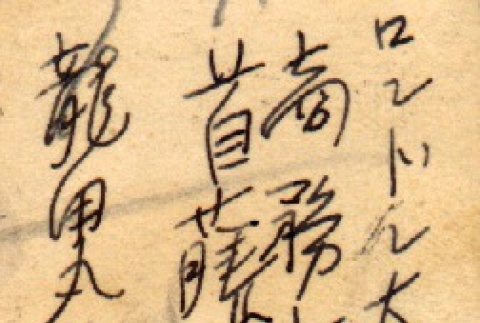 ロンドン大
商務
首藤
龍田丸